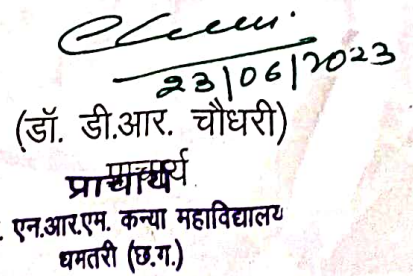 23/06/2023
(डॉ. डी.आर. चौधरी)
प्राचार्य
प्राचार्य
. एन.आर.एम. कन्या महाविद्यालय
धमतरी (छ.ग.)